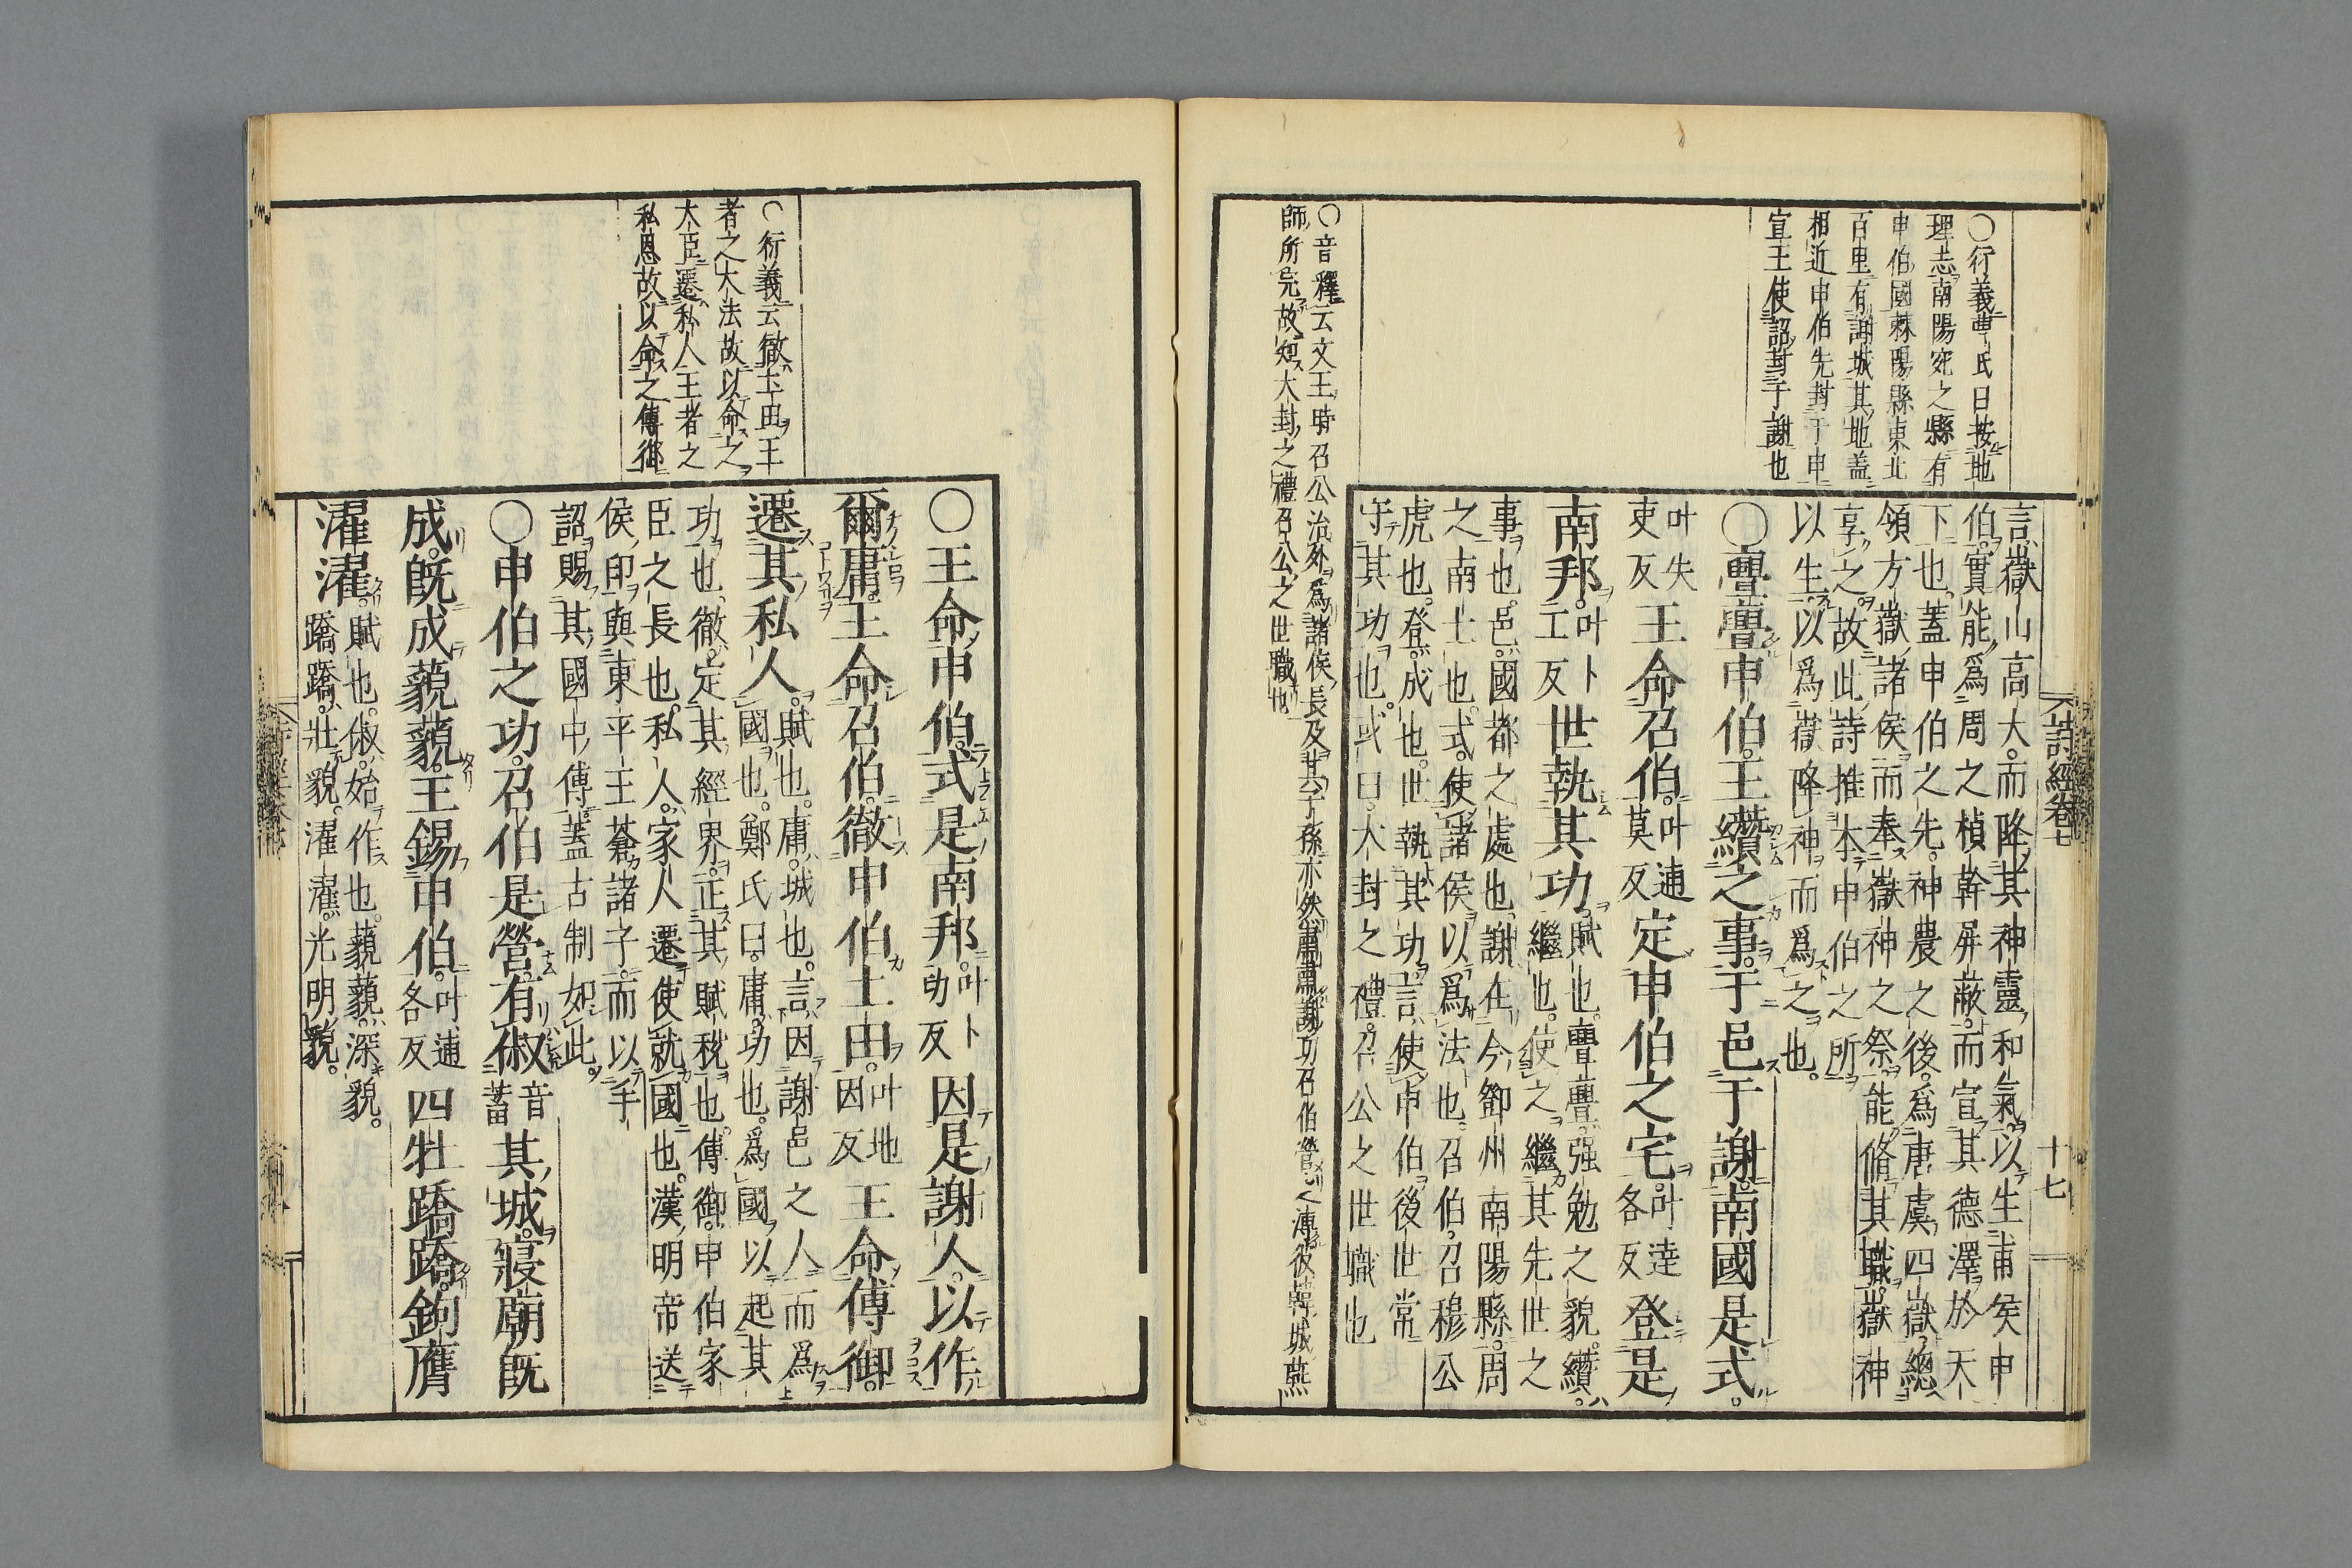 ○衍義曹氏曰按地
理志南陽宛之縣有
申伯國棘陽縣東北
百里有謝城其地蓋
相近申伯先封于申
宣王使詔封于謝也
言嶽山高大而降其神靈和氣以生甫侯申
伯實能爲周之楨幹屏蔽而宣其德澤於天
下也蓋申伯之先神農之後爲唐虞四嶽總
領方嶽諸侯而奉嶽神之祭能脩其職嶽神
享之故此詩推本申伯之所
以生以爲嶽降神而爲之也
○亹亹申伯王纘之事于邑于謝南國是式
叶失吏反王命召伯叶逋莫反定申伯之宅叶達各反登是
南邦叶卜工反世執其功賦也亹亹强勉之貌纘
繼也使之繼其先世之
事也邑國都之處也謝在今鄧州南陽縣周
之南土也式使諸侯以爲法也召伯召穆公
虎也登成也世執其功言使申伯後世常
守其功也或曰大封之禮召公之世職也
○音釋云文王時召公治外爲諸侯長及其子孫亦然肅肅謝功召伯營之溥彼韓城燕
師所完故知大封之禮召公之世職也
詩經卷七
十七
○衍義云徹土田王
者之大法故以命之
大臣遷私人王者之
私恩故以命之傅御
○王命申伯式是南邦叶卜功反因是謝人以作
爾庸王命召伯徹申伯土田叶地因反王命傅御
遷其私人賦也庸城也言因謝邑之人而爲
國也鄭氏曰庸功也爲國以起其
功也徹定其經界正其賦稅也傅御申伯家
臣之長也私人家人遷使就國也漢明帝送
侯印與東平王蒼諸子而以手
詔賜其國中傅蓋古制如此
○申伯之功召伯是營有俶音蓄其城寢廟既
成既成藐藐王錫申伯叶逋各反四牡蹻蹻鉤膺
濯濯賦也俶始作也藐藐深貌
蹻蹻壯貌濯濯光明貌